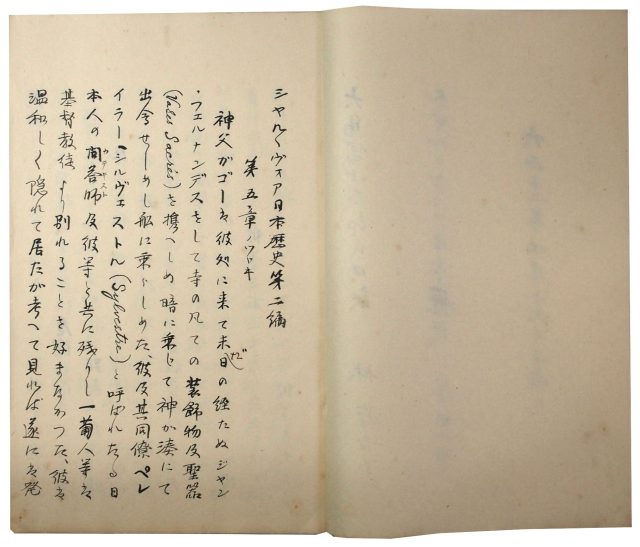 シヤルルヴオア日本歴史第二編
第五章ノツヅキ
神父がゴーは彼処に来て未だ日の経たぬジヤン
・フエルナンデスをして寺の凡ての装飾物及聖器
(Vases Sacrés)を携へしめ暗に乗じて神が湊にて
出会せしめし船に乗らしめた、彼及其同僚ペレ
イラー、シルヴエストル(Sylvestre)と呼ばれたる日
本人の問答師及彼等と共に残りし一葡人等は
カテキスト
基督教徒より別れることを好まなかつた、彼は
温和しく隠れて居たが考へて見れば遂には発